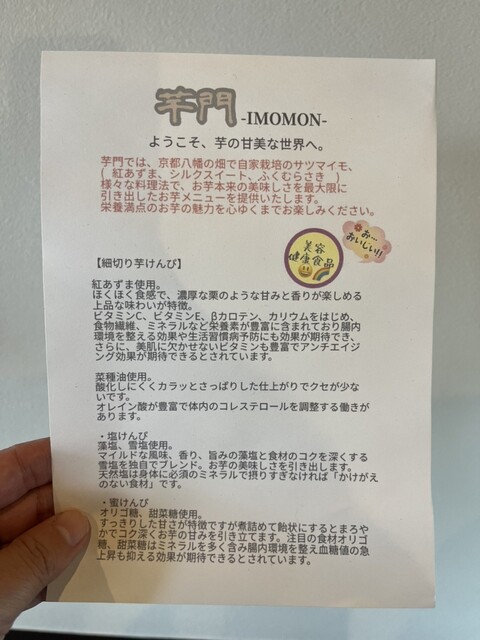 芋門 -IMOMON-
ようこそ、芋の甘美な世界へ。
芋門では、京都八幡の畑で自家栽培のサツマイモ、
( 紅あずま、シルクスイート、ふくむらさき )
様々な料理法で、お芋本来の美味しさを最大限に
引き出したお芋メニューを提供いたします。
栄養満点のお芋の魅力を心ゆくまでお楽しみください。
美容
健康食品
お〜
おいしい!!
【細切り芋けんぴ】
紅あずま使用。
ほくほく食感で、濃厚な栗のような甘みと香りが楽しめる
上品な味わいが特徴。
ビタミンC、ビタミンE、βカロテン、カリウムをはじめ、
食物繊維、ミネラルなど栄養素が豊富に含まれており腸内
環境を整える効果や生活習慣病予防にも効果が期待でき、
さらに、美肌に欠かせないビタミンも豊富でアンチエイジ
ング効果が期待できるとされています。
菜種油使用。
酸化しにくくカラッとさっぱりした仕上がりでクセが少な
いです。
オレイン酸が豊富で体内のコレステロールを調整する働きが
あります。
・塩けんぴ
藻塩、雪塩使用。
マイルドな風味、香り、旨みの藻塩と食材のコクを深くする
雪塩を独自でブレンド。お芋の美味しさを引き出します。
天然塩は身体に必須のミネラルで摂りすぎなければ「かけがえ
のない食材」です。
・蜜けんぴ
オリゴ糖、甜菜糖使用。
すっきりした甘さが特徴ですが煮詰めて飴状にするとまろや
かでコク深くお芋の甘みを引き立てます。注目の食材オリゴ
糖、甜菜糖はミネラルを多く含み腸内環境を整え血糖値の急
上昇も抑える効果が期待できるとされています。